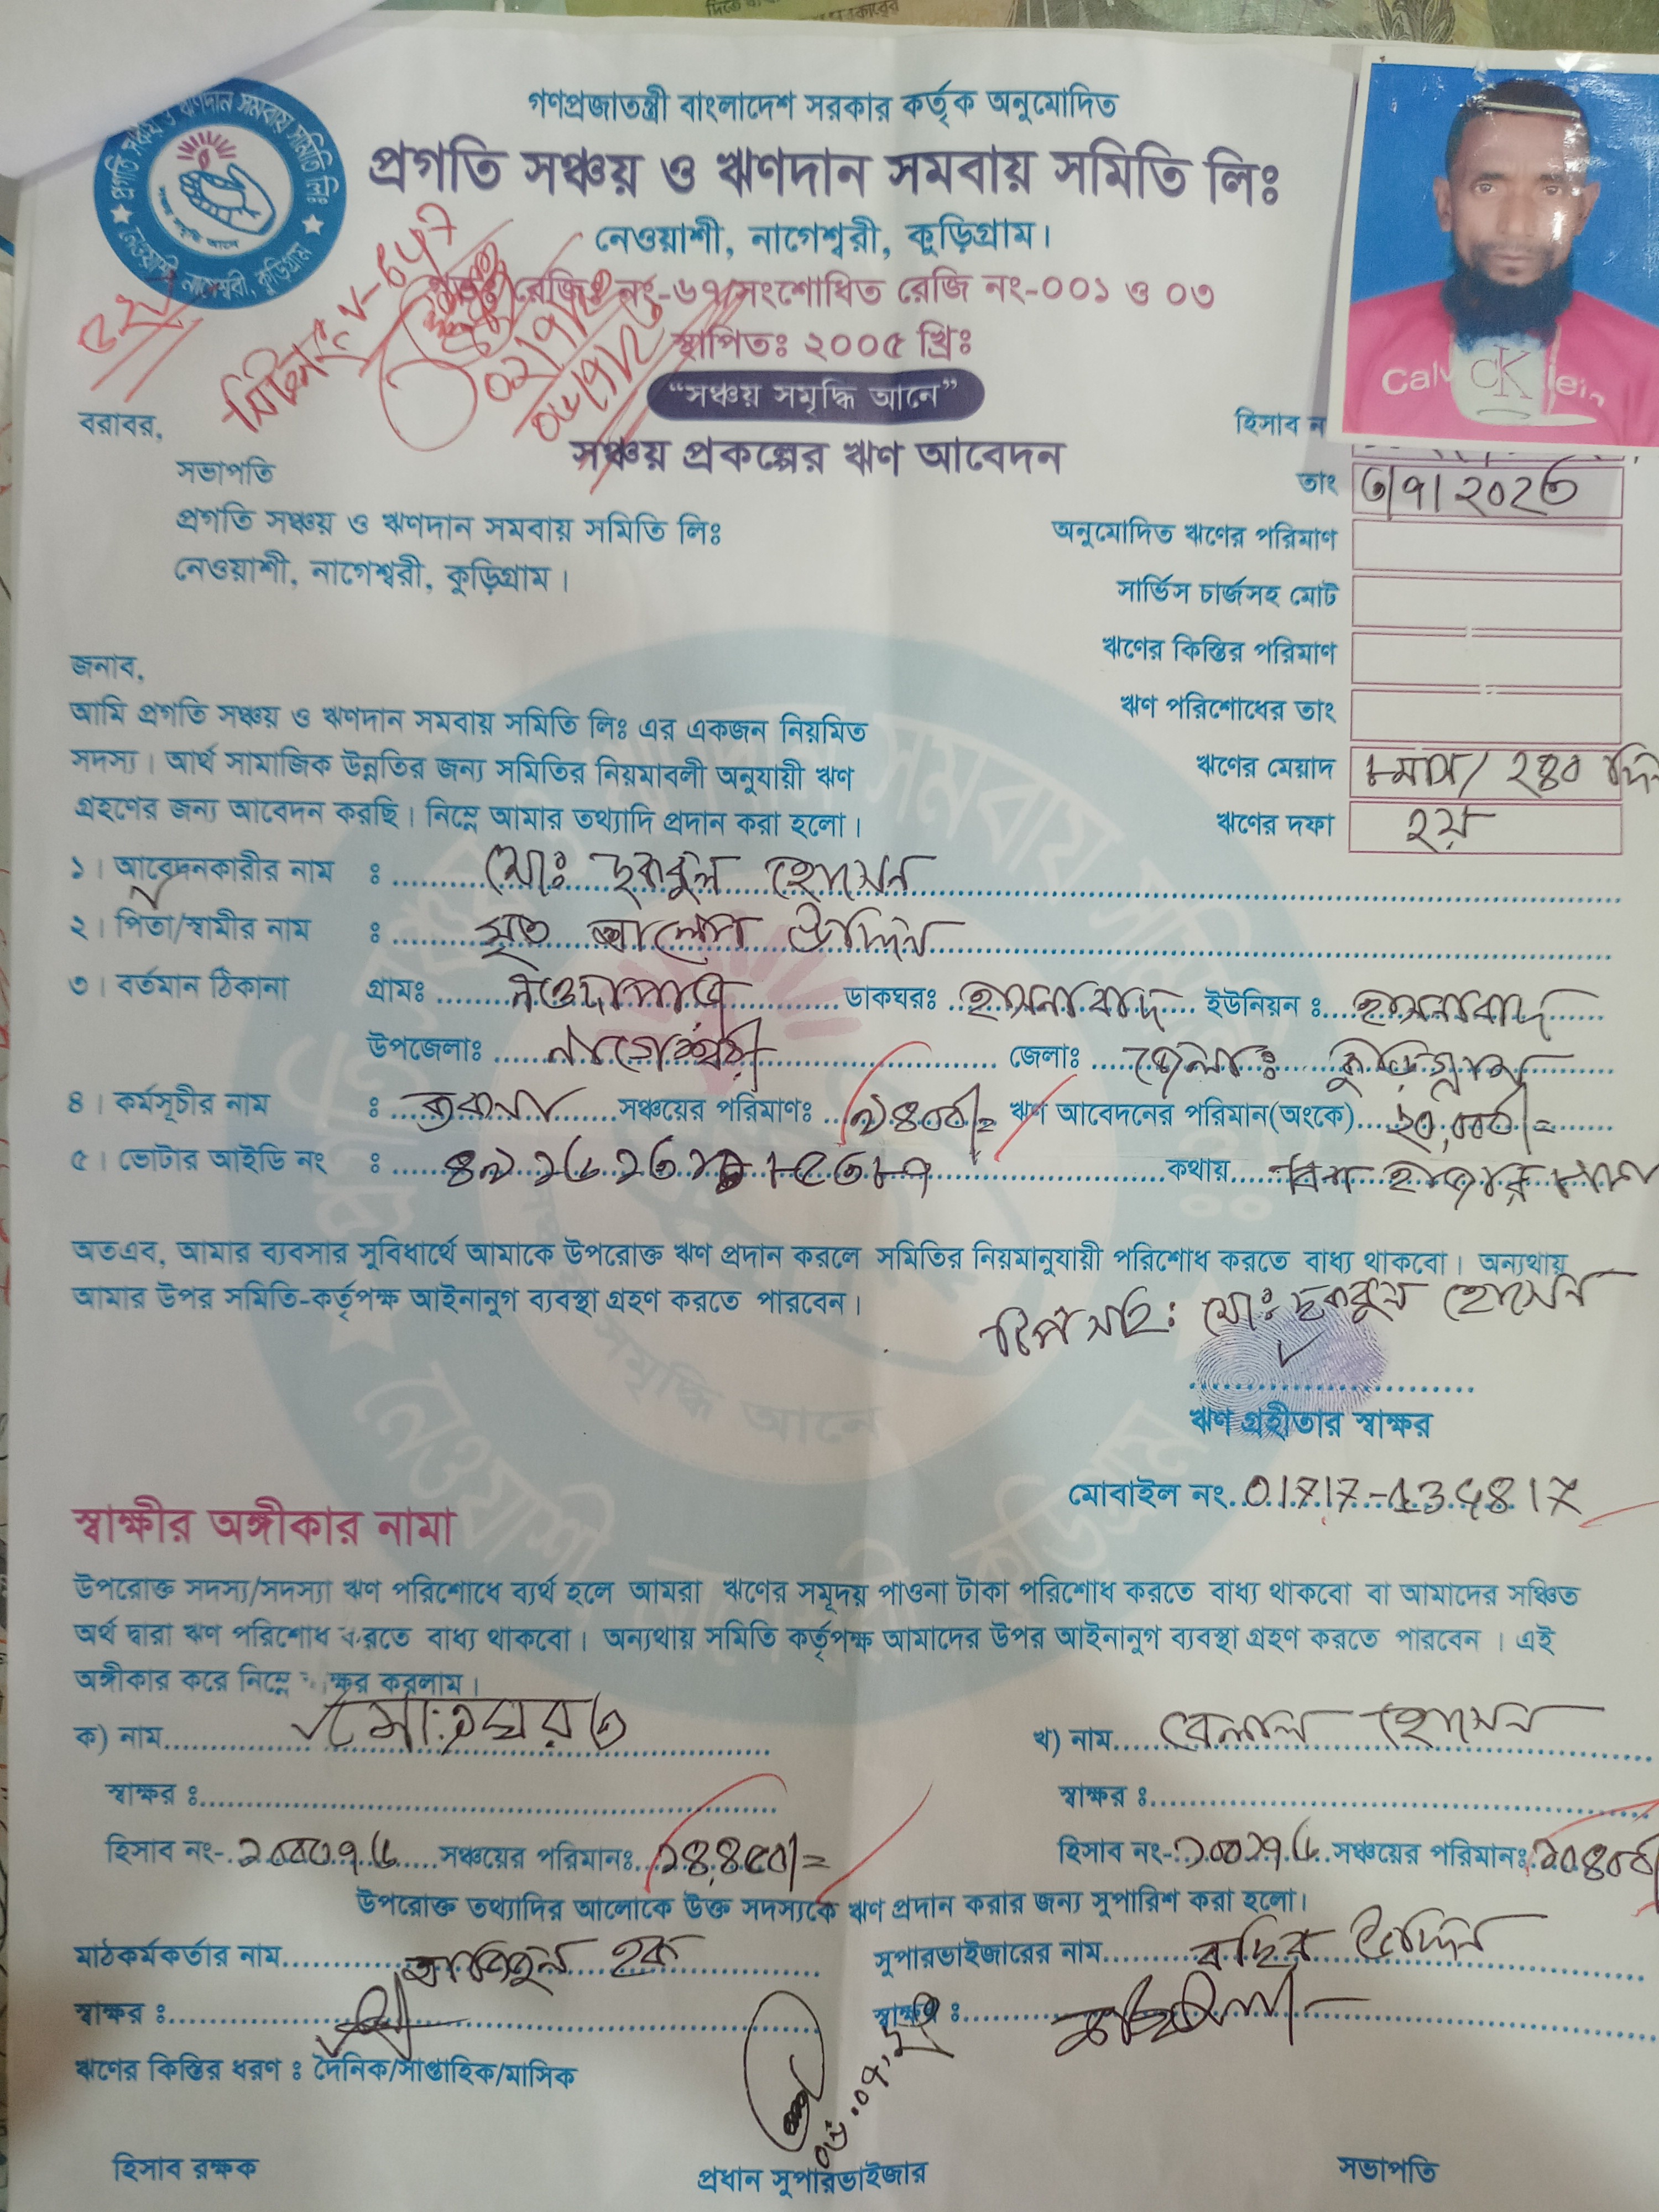 গণপ্রজাতন্ত্রী বাংলাদেশ সরকার কর্তৃক অনুমোদিত
প্রগতি সঞ্চয় ও ঋণদান সমবায় সমিতি লিঃ
নেওয়াশী, নাগেশ্বরী, কুড়িগ্রাম।
রেজিঃ নং-৬৭ সংশোধিত রেজি নং-০০১ ও ০৩
স্থাপিতঃ ২০০৫ খ্রিঃ
“সঞ্চয় সমৃদ্ধি আনে”
সঞ্চয় প্রকল্পের ঋণ আবেদন
বরাবর,
সভাপতি
প্রগতি সঞ্চয় ও ঋণদান সমবায় সমিতি লিঃ
নেওয়াশী, নাগেশ্বরী, কুড়িগ্রাম।
হিসাব ন
তাং ৩/৭/২০২৩
অনুমোদিত ঋণের পরিমাণ
সার্ভিস চার্জসহ মোট
ঋণের কিস্তির পরিমাণ
ঋণ পরিশোধের তাং
ঋণের মেয়াদ ৮মাস/ ২৪০ দিন
ঋণের দফা ২য়
জনাব,
আমি প্রগতি সঞ্চয় ও ঋণদান সমবায় সমিতি লিঃ এর একজন নিয়মিত
সদস্য। আর্থ সামাজিক উন্নতির জন্য সমিতির নিয়মাবলী অনুযায়ী ঋণ
গ্রহণের জন্য আবেদন করছি। নিম্নে আমার তথ্যাদি প্রদান করা হলো।
১। আবেদনকারীর নাম ঃ মোঃ ছকবুল হোসেন
২। পিতা/স্বামীর নাম ঃ মৃত আলেপ উদ্দিন
৩। বর্তমান ঠিকানা গ্রামঃ নওদাপাড়া ডাকঘরঃ হাসনাবাদ ইউনিয়ন ঃ হাসনাবাদ
উপজেলাঃ নাগেশ্বরী জেলাঃ জেলাঃ কুড়িগ্রাম
৪। কর্মসূচীর নাম ঃ সঞ্চয়ের পরিমাণঃ ঋণ আবেদনের পরিমান(অংকে) ২০,০০০/=
৫। ভোটার আইডি নং ঃ কথায় বিশ হাজার
অতএব, আমার ব্যবসার সুবিধার্থে আমাকে উপরোক্ত ঋণ প্রদান করলে সমিতির নিয়মানুযায়ী পরিশোধ করতে বাধ্য থাকবো। অন্যথায়
আমার উপর সমিতি-কর্তৃপক্ষ আইনানুগ ব্যবস্থা গ্রহণ করতে পারবেন।
টিপ সহি: মোঃ ছকবুল হোসেন
ঋণ গ্রহীতার স্বাক্ষর
মোবাইল নং 01717-134817
স্বাক্ষীর অঙ্গীকার নামা
উপরোক্ত সদস্য/সদস্যা ঋণ পরিশোধে ব্যর্থ হলে আমরা ঋণের সমূদয় পাওনা টাকা পরিশোধ করতে বাধ্য থাকবো বা আমাদের সঞ্চিত
অর্থ দ্বারা ঋণ পরিশোধ করতে বাধ্য থাকবো। অন্যথায় সমিতি কর্তৃপক্ষ আমাদের উপর আইনানুগ ব্যবস্থা গ্রহণ করতে পারবেন। এই
অঙ্গীকার করে নিম্নে ক্ষর করলাম।
ক) নাম মোঃ হযরত খ) নাম বেলাল হোসেন
স্বাক্ষর ঃ স্বাক্ষর ঃ
হিসাব নং- সঞ্চয়ের পরিমানঃ ১৪,৪৫০/= হিসাব নং- সঞ্চয়ের পরিমানঃ
উপরোক্ত তথ্যাদির আলোকে উক্ত সদস্যকে ঋণ প্রদান করার জন্য সুপারিশ করা হলো।
মাঠকর্মকর্তার নাম হক সুপারভাইজারের নাম বছির উদ্দিন
স্বাক্ষর ঃ স্বাক্ষর ঃ
ঋণের কিস্তির ধরণ ঃ দৈনিক/সাপ্তাহিক/মাসিক
হিসাব রক্ষক প্রধান সুপারভাইজার সভাপতি